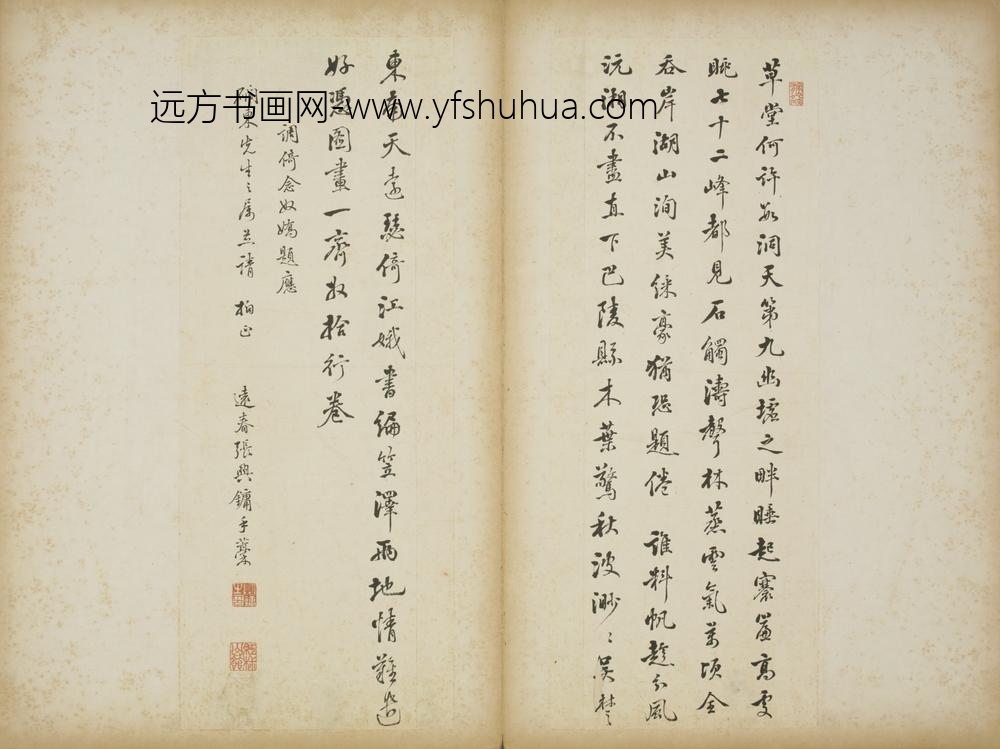 草堂何許洞天第九幽墟之畔睡起褰簾高處
眺七十二峰都見石觸濤聲林蒸雲氣萬頃全
吞岸湖山洵美綵豪猶恐題倦 誰料帆趁分風
沅湘不盡直下巴陵縣木葉驚秋波渺〻吳楚
東南天遠瑟倚江娥書編笠澤兩地情難遣
好憑圖畫一齊收拾行卷
調倚念奴嬌題應
東先生之属並請 拍正
遠春張興鏞手藁
远方书画网-www.yfshuhua.com